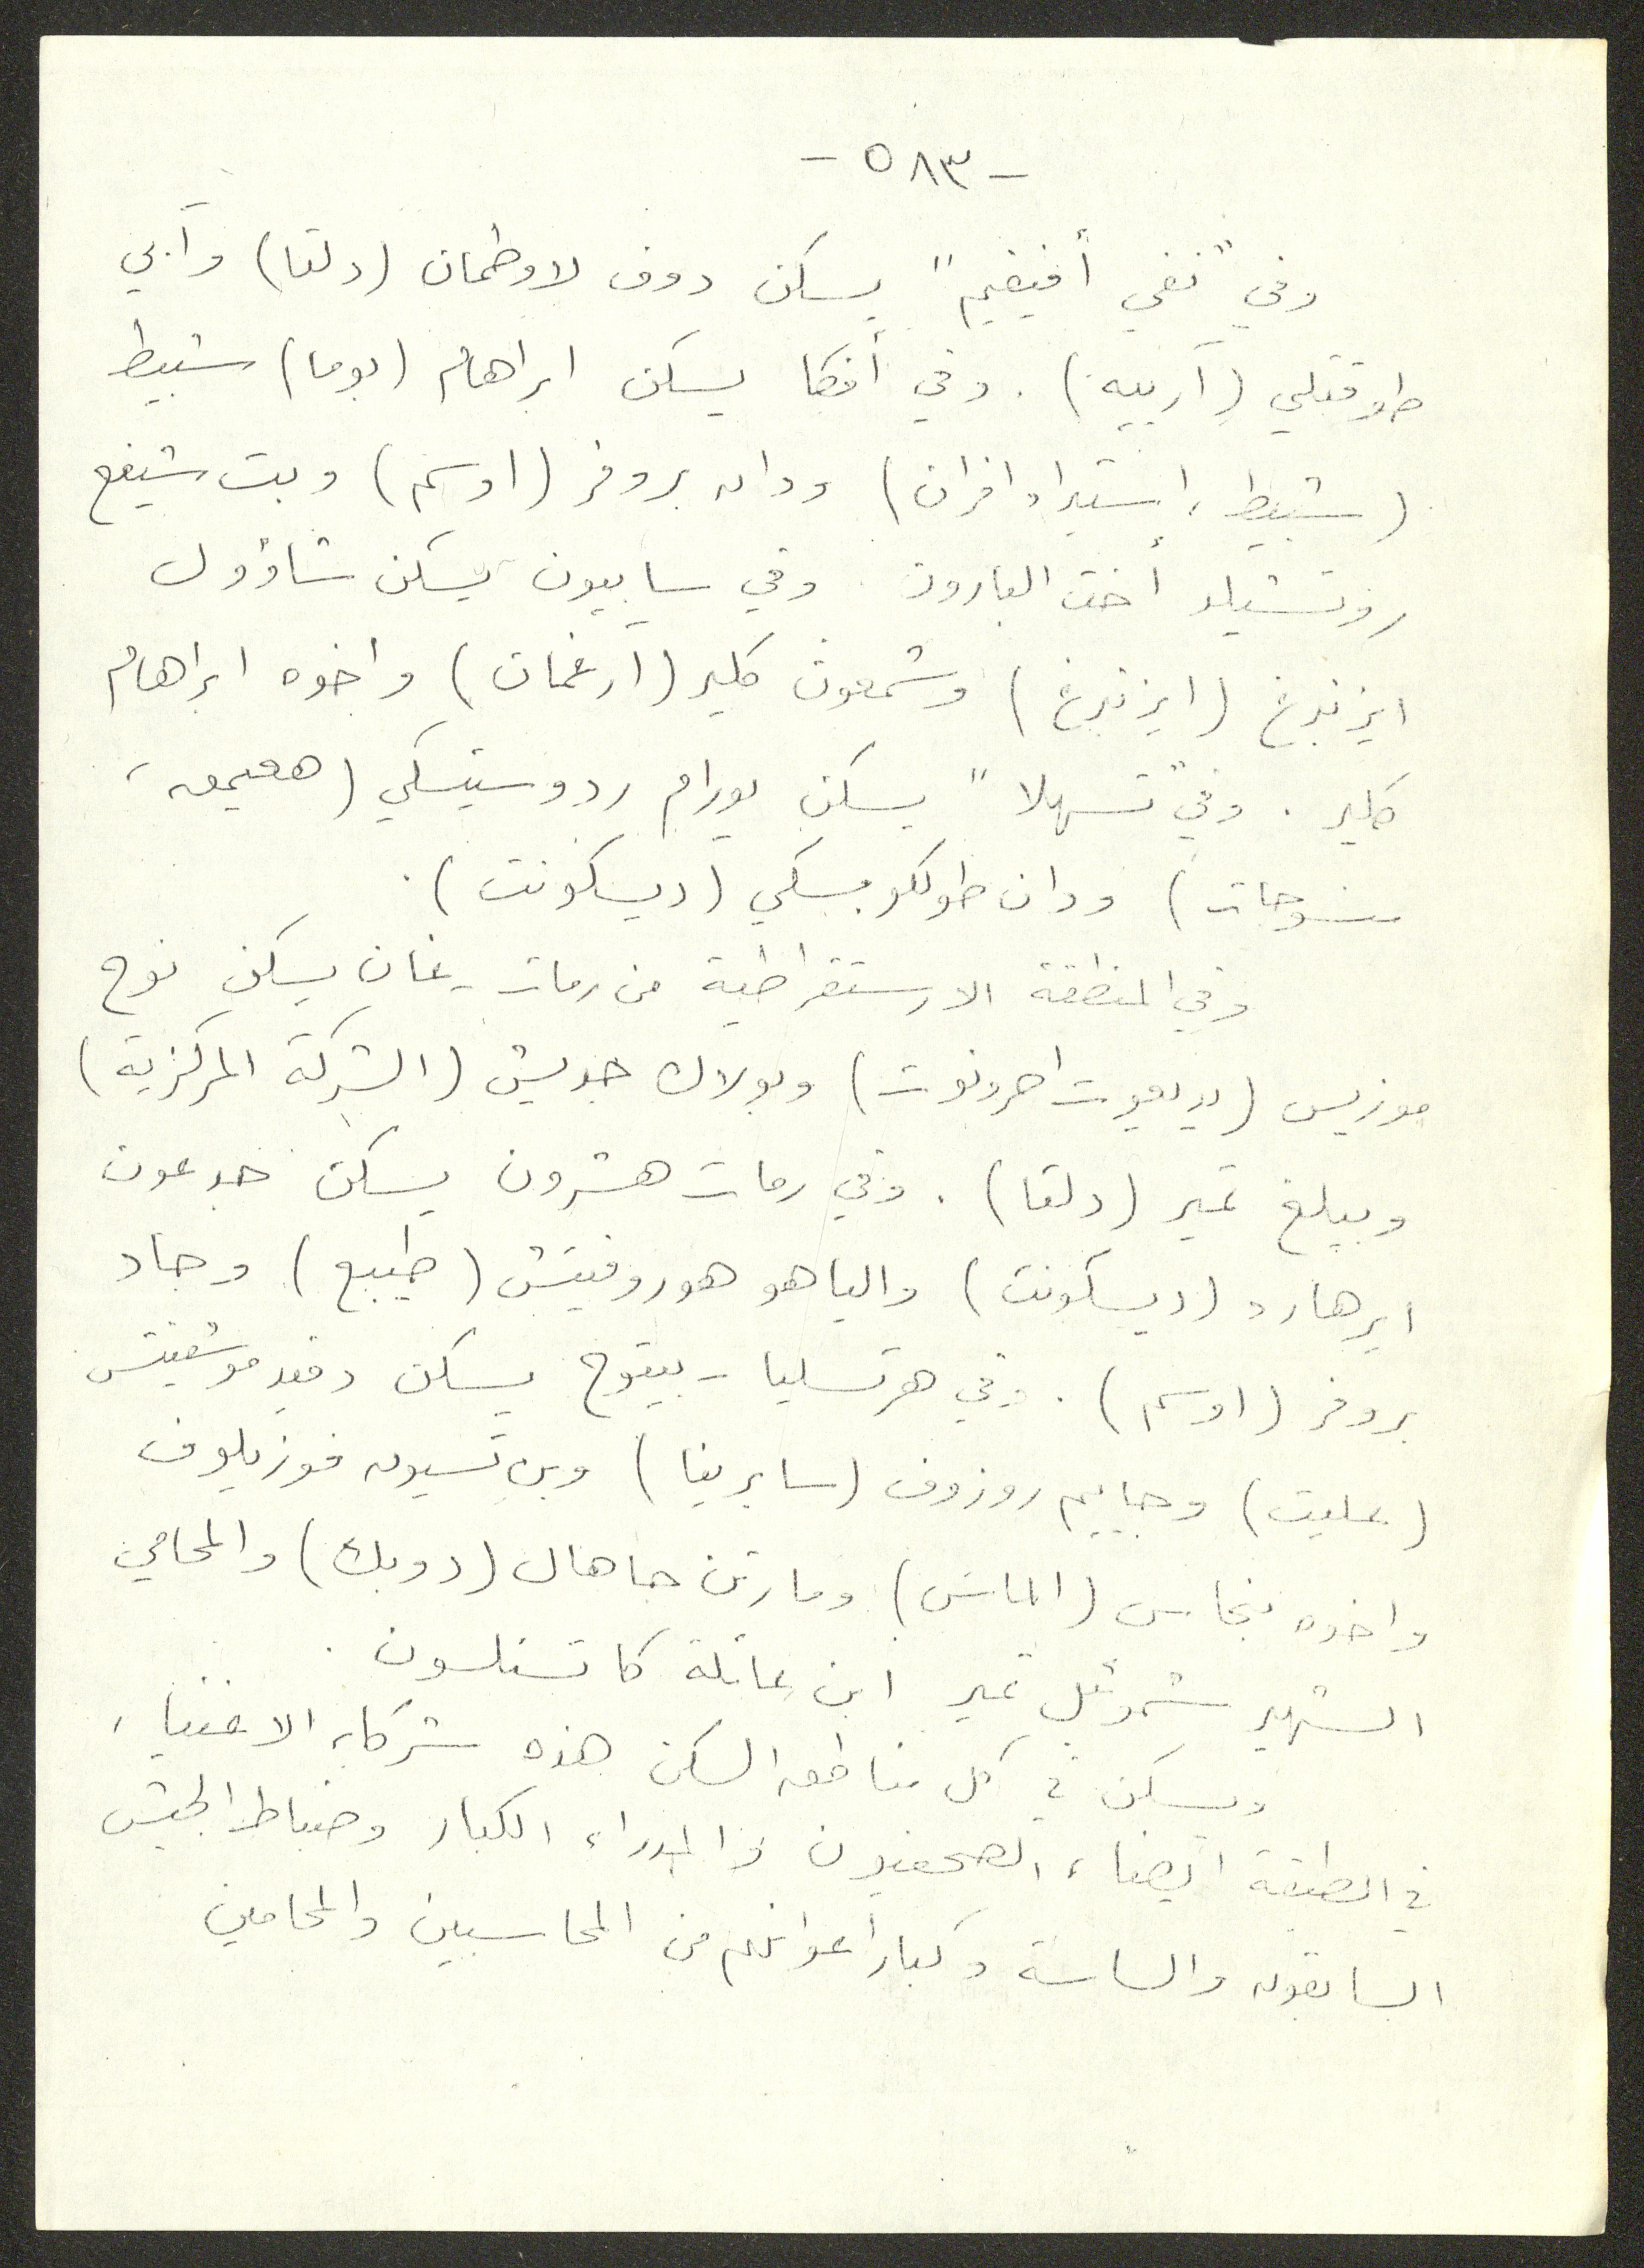 - ٥٨٣ -
وفي "نفي أفيفيم" يسكن دوف لاوطمان (دلتا) وآبي
طوقتلي (آرييه). وفي أفكا يسكن ابراهام (بوما) شبيط
(شبيط، استيراد افران) ودان بروفر (اوسم) وبت شيفع
روتشيلد أخت البارون. وفي سابيون يسكن شاؤول
ايزنبرغ (ايزنبرغ) وشمعون كلير (ارغمان) واخوه ابراهام
كلير. وفي "تسهلا" يسكن يورام ردوستسكي (هعيمق،
منسوجات) ودان طولكوبسكي (ديسكونت).
وفي المنطقة الارستقراطية من رمات - غان يسكن نوح
موزيس (يديعوت احرونوت) وبولاك جديش (الشركة المركزية)
وبيلغ تمير (دلتا). وفي رمات هشرون يسكن جدعون
ايرهارد (ديسكونت) والياهو هوروفيتش (طيبع) وجاد
بروفر (اوسم). وفي هرتسليا - بيتوح يسكن دفيد موشفيتس
(عليت) وحاييم روزوف (سابرينا) وبن تسيون فوزيلوف
واخوه بنحاس (الماس) ومارتن جاهال (دوبك) والمحامي
الشهير شموئيل تمير ابن عائلة كاتسنلسون.
ويسكن في كل مناطق السكن هذه شركاء الاغنياء
في الطبقة ايضا، الصحفيون والمدراء الكبار وضباط الجيش
السابقون والساسة وكبار اعوانهم من المحاسبين والمحامين